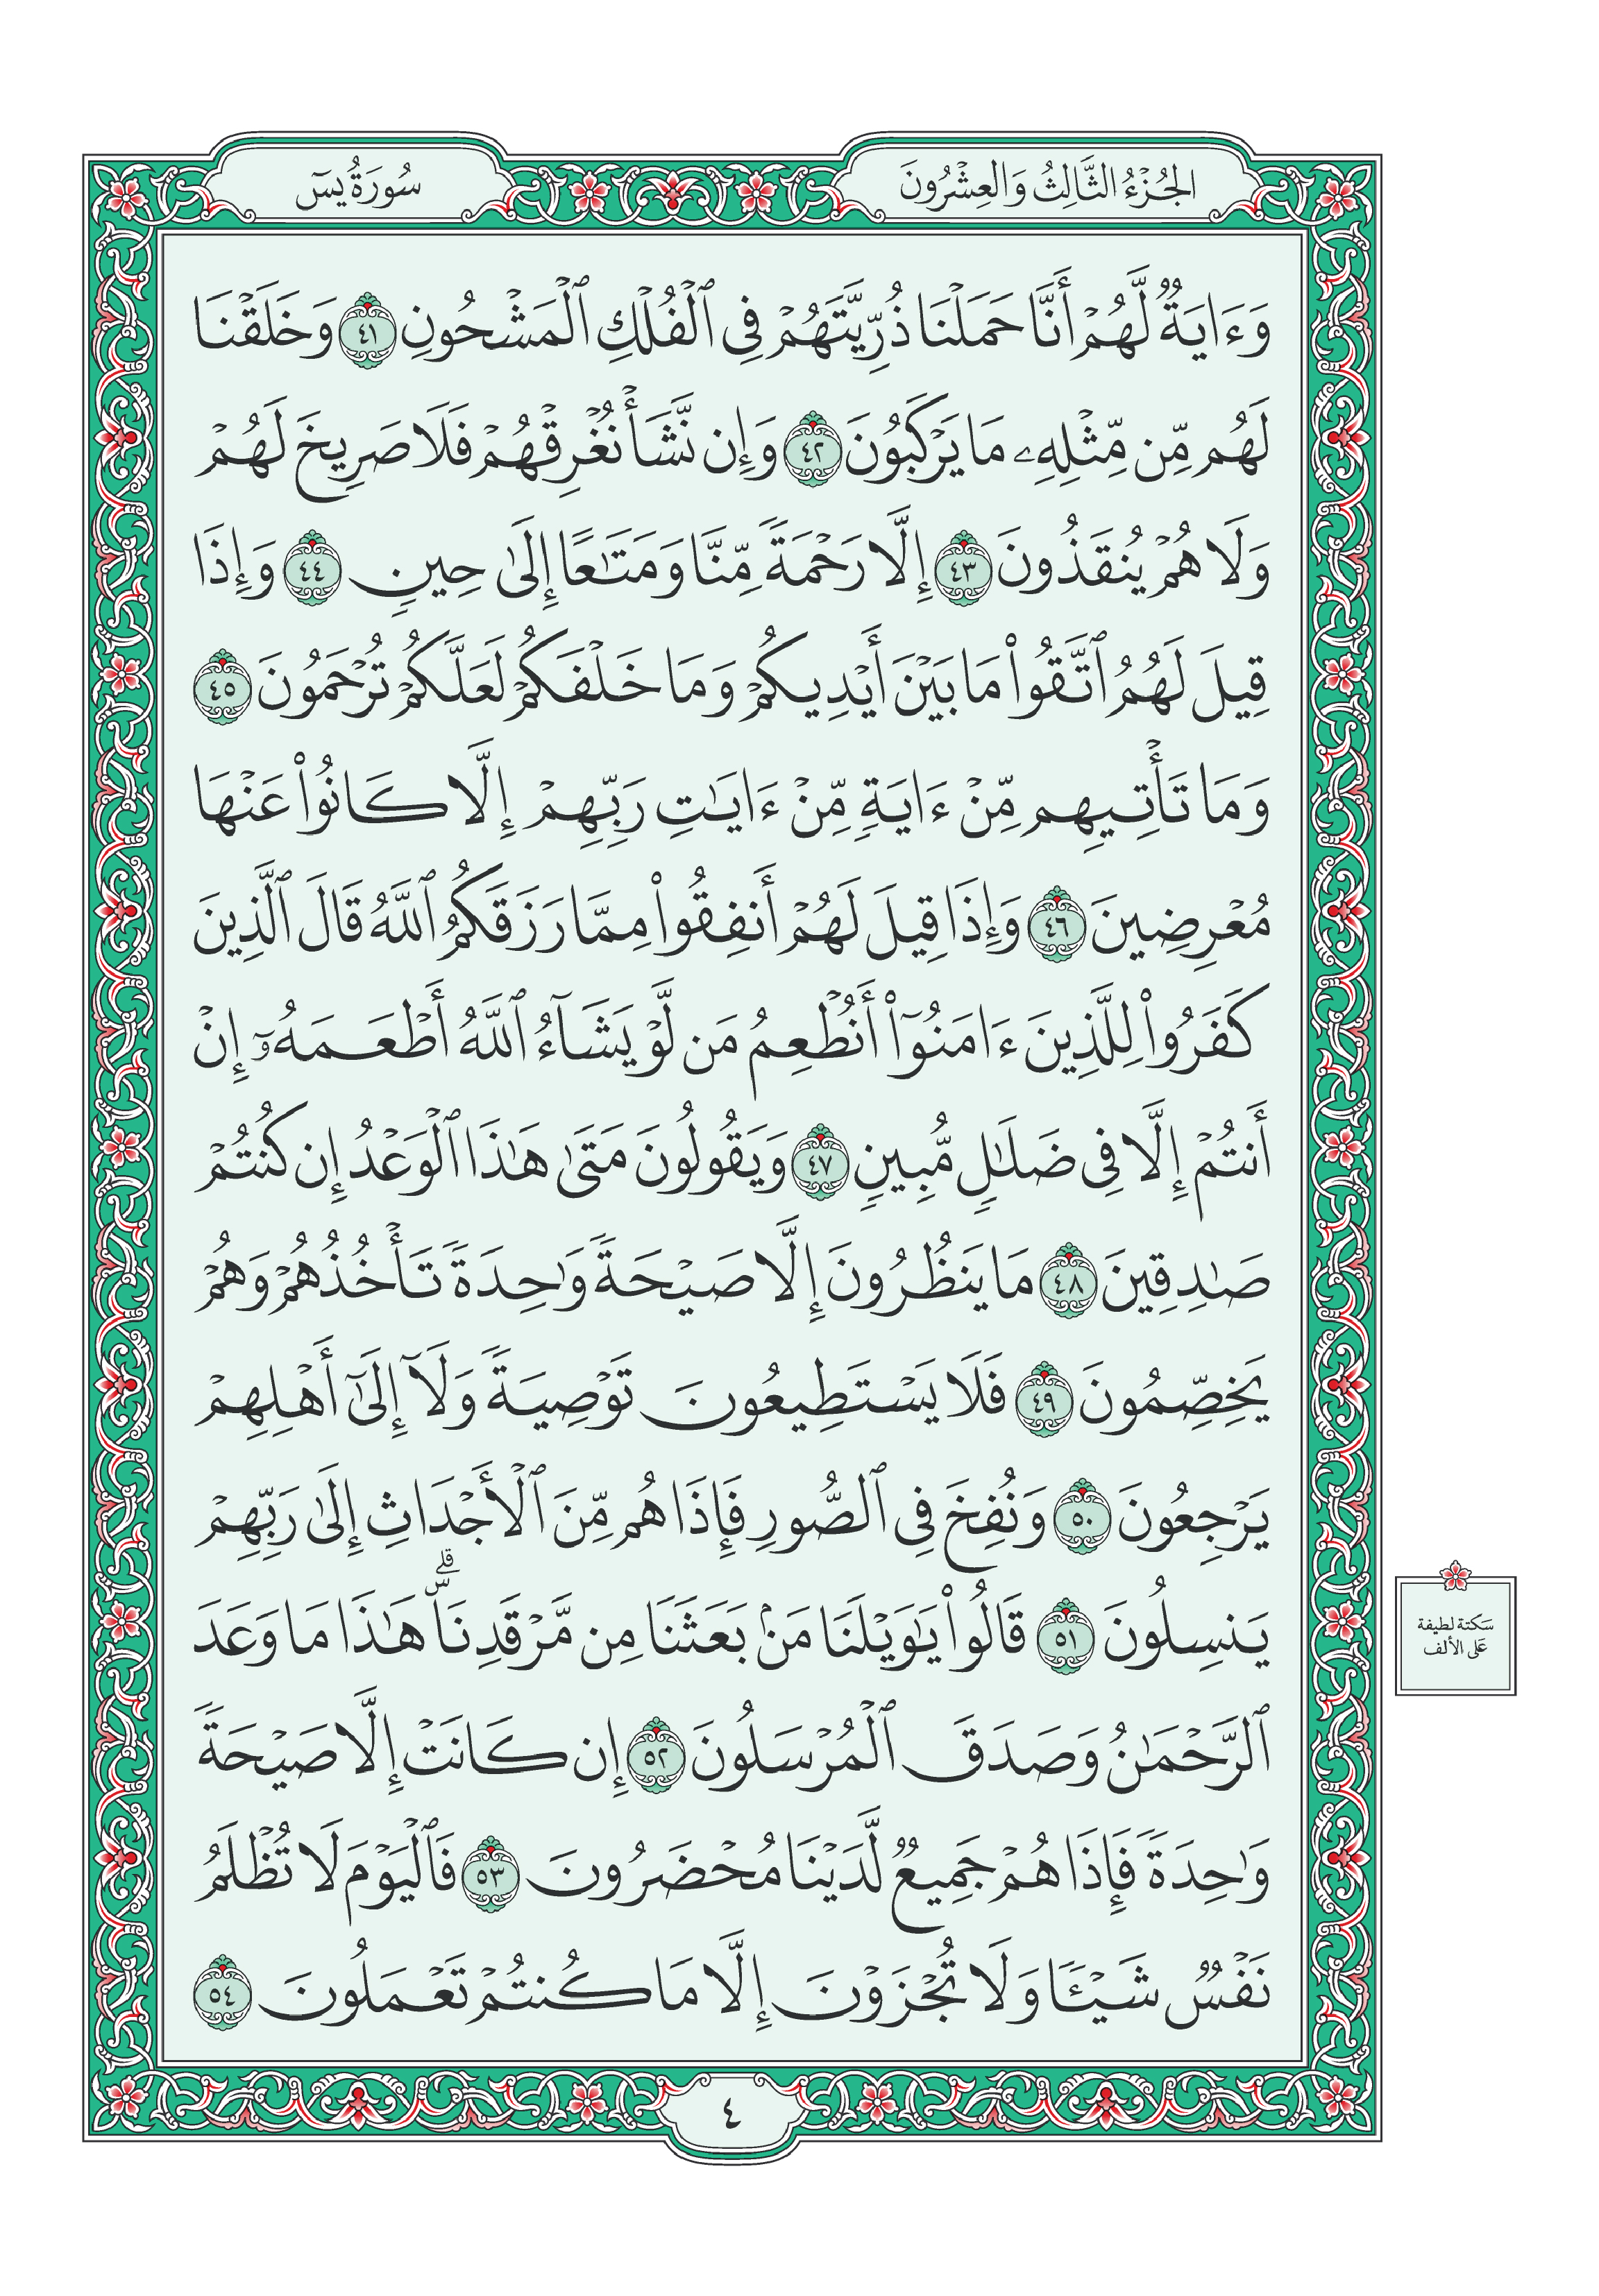 الجُزْءُ الثَّالِثُ وَالعِشْرُونَ
سُورَةُ يسٓ
وَءَايَةٌ لَّهُمْ أَنَّا حَمَلْنَا ذُرِّيَّتَهُمْ فِي ٱلْفُلْكِ ٱلْمَشْحُونِ ٤١ وَخَلَقْنَا
لَهُم مِّن مِّثْلِهِۦ مَا يَرْكَبُونَ ٤٢ وَإِن نَّشَأْ نُغْرِقْهُمْ فَلَا صَرِيخَ لَهُمْ
وَلَا هُمْ يُنقَذُونَ ٤٣ إِلَّا رَحْمَةً مِّنَّا وَمَتَٰعًا إِلَىٰ حِينٍ ٤٤ وَإِذَا
قِيلَ لَهُمُ ٱتَّقُوا۟ مَا بَيْنَ أَيْدِيكُمْ وَمَا خَلْفَكُمْ لَعَلَّكُمْ تُرْحَمُونَ ٤٥
وَمَا تَأْتِيهِم مِّنْ ءَايَةٍ مِّنْ ءَايَٰتِ رَبِّهِمْ إِلَّا كَانُوا۟ عَنْهَا
مُعْرِضِينَ ٤٦ وَإِذَا قِيلَ لَهُمْ أَنفِقُوا۟ مِمَّا رَزَقَكُمُ ٱللَّهُ قَالَ ٱلَّذِينَ
كَفَرُوا۟ لِلَّذِينَ ءَامَنُوٓا۟ أَنُطْعِمُ مَن لَّوْ يَشَآءُ ٱللَّهُ أَطْعَمَهُۥٓ إِنْ
أَنتُمْ إِلَّا فِي ضَلَٰلٍ مُّبِينٍ ٤٧ وَيَقُولُونَ مَتَىٰ هَٰذَا ٱلْوَعْدُ إِن كُنتُمْ
صَٰدِقِينَ ٤٨ مَا يَنظُرُونَ إِلَّا صَيْحَةً وَٰحِدَةً تَأْخُذُهُمْ وَهُمْ
يَخِصِّمُونَ ٤٩ فَلَا يَسْتَطِيعُونَ تَوْصِيَةً وَلَآ إِلَىٰٓ أَهْلِهِمْ
يَرْجِعُونَ ٥٠ وَنُفِخَ فِي ٱلصُّورِ فَإِذَا هُم مِّنَ ٱلْأَجْدَاثِ إِلَىٰ رَبِّهِمْ
يَنسِلُونَ ٥١ قَالُوا۟ يَٰوَيْلَنَا مَنۢ بَعَثَنَا مِن مَّرْقَدِنَاۜۗ هَٰذَا مَا وَعَدَ
ٱلرَّحْمَٰنُ وَصَدَقَ ٱلْمُرْسَلُونَ ٥٢ إِن كَانَتْ إِلَّا صَيْحَةً
وَٰحِدَةً فَإِذَا هُمْ جَمِيعٌ لَّدَيْنَا مُحْضَرُونَ ٥٣ فَٱلْيَوْمَ لَا تُظْلَمُ
نَفْسٌ شَيْـًٔا وَلَا تُجْزَوْنَ إِلَّا مَا كُنتُمْ تَعْمَلُونَ ٥٤
سَكتة لطيفة
عَلى الألف
٤